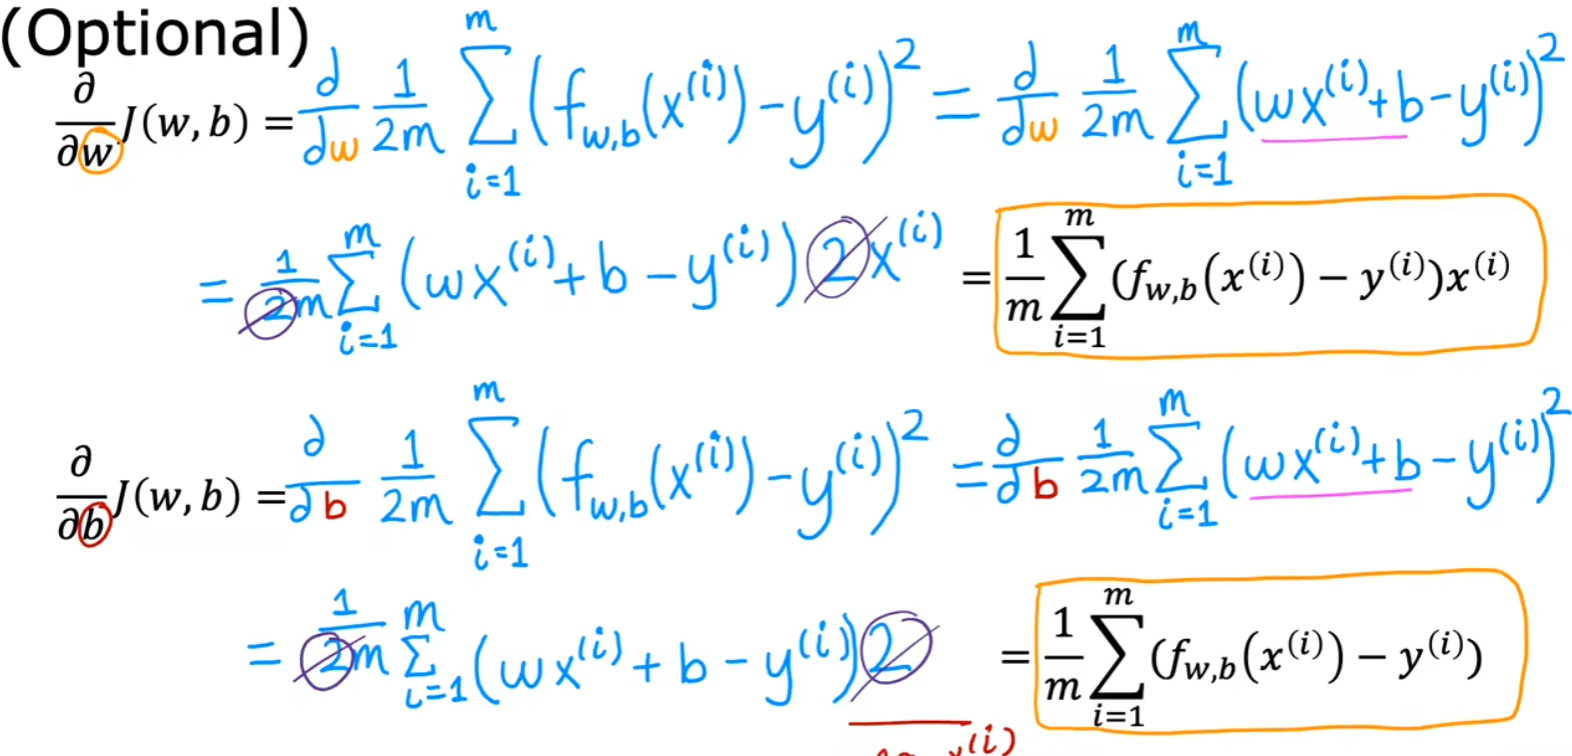 (Optional)
∂/∂w J(w, b) = d/dw 1/2m ∑_{i=1}^{m} (f_{w,b}(x^{(i)}) - y^{(i)})^2 = d/dw 1/2m ∑_{i=1}^{m} (wx^{(i)} + b - y^{(i)})^2
= 1/2m ∑_{i=1}^{m} (wx^{(i)} + b - y^{(i)}) 2x^{(i)} = 1/m ∑_{i=1}^{m} (f_{w,b}(x^{(i)}) − y^{(i)})x^{(i)}
∂/∂b J(w, b) = ∂/∂b 1/2m ∑_{i=1}^{m} (f_{w,b}(x^{(i)}) - y^{(i)})^2 = ∂/∂b 1/2m ∑_{i=1}^{m} (wx^{(i)} + b - y^{(i)})^2
= 1/2m ∑_{i=1}^{m} (wx^{(i)} + b - y^{(i)}) 2 = 1/m ∑_{i=1}^{m} (f_{w,b}(x^{(i)}) − y^{(i)})
x^{(i)}